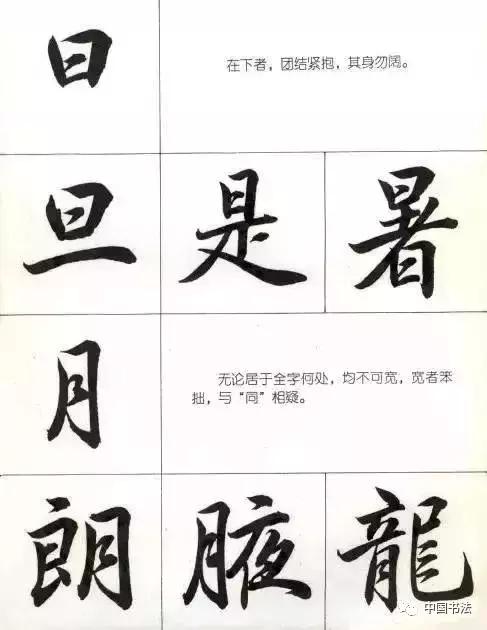 日
在下者，团结紧抱，其身勿阔。
旦 是 暑
月
无论居于全字何处，均不可宽，宽者笨
拙，与“同”相疑。
朗 腋 龍
中国书法